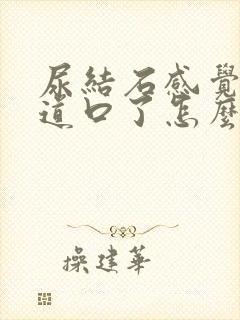 尿結石感覺
道口了怎麼
操建華